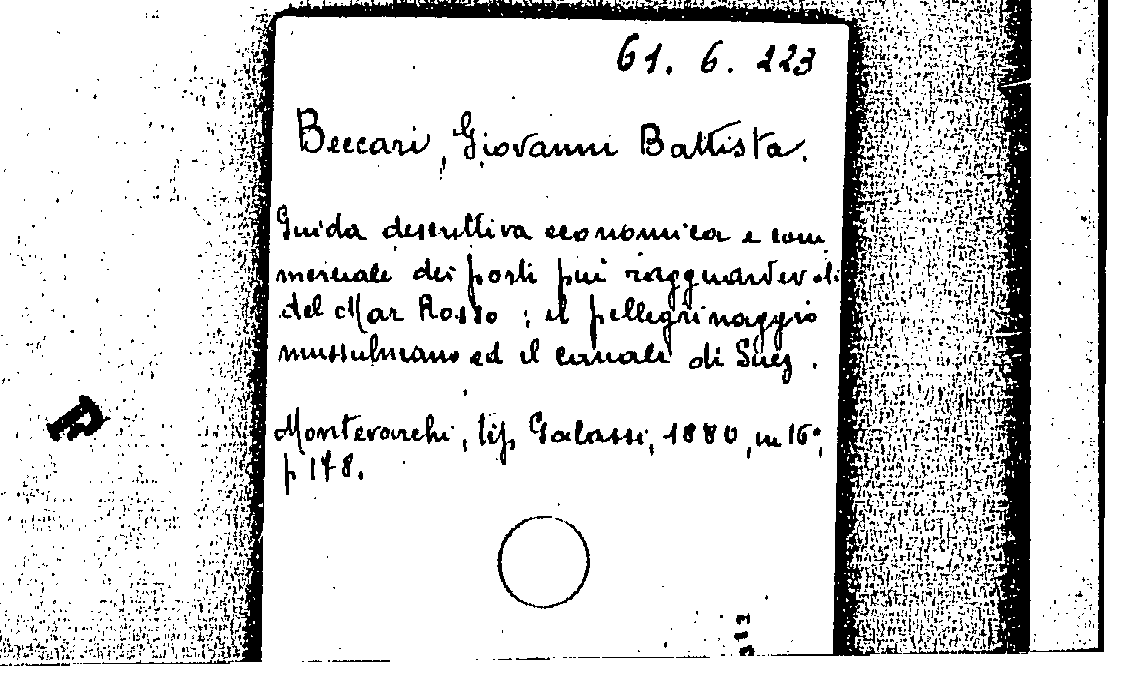 61. 6. 223
Beccari, Giovanni Battista.
Guida descrittiva economica e com
merciale dei porti più ragguardevoli
del Mar Rosso; il pellegrinaggio
mussulmano ed il canale di Suez.
Montevarchi, tip. Galassi, 1880, in 16°,
p 148.